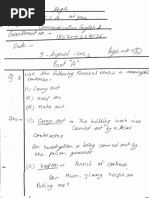 B.C.A
Communicative English 2
Enrollment no:-
Date:-
Page no -①
Part "A"
Q.2 Use the following Phrasal Verbs in meaningful
sentences:
(i) Carry out
(ii) Keep on
(iii) Make out
(i) Carry out → The building work was
carried out by a local
Contractor
An investigation is being carried out by
the prison governor
(ii)
→ persist of continue
ex → Mum, Jimmy keeps on
Poking me!